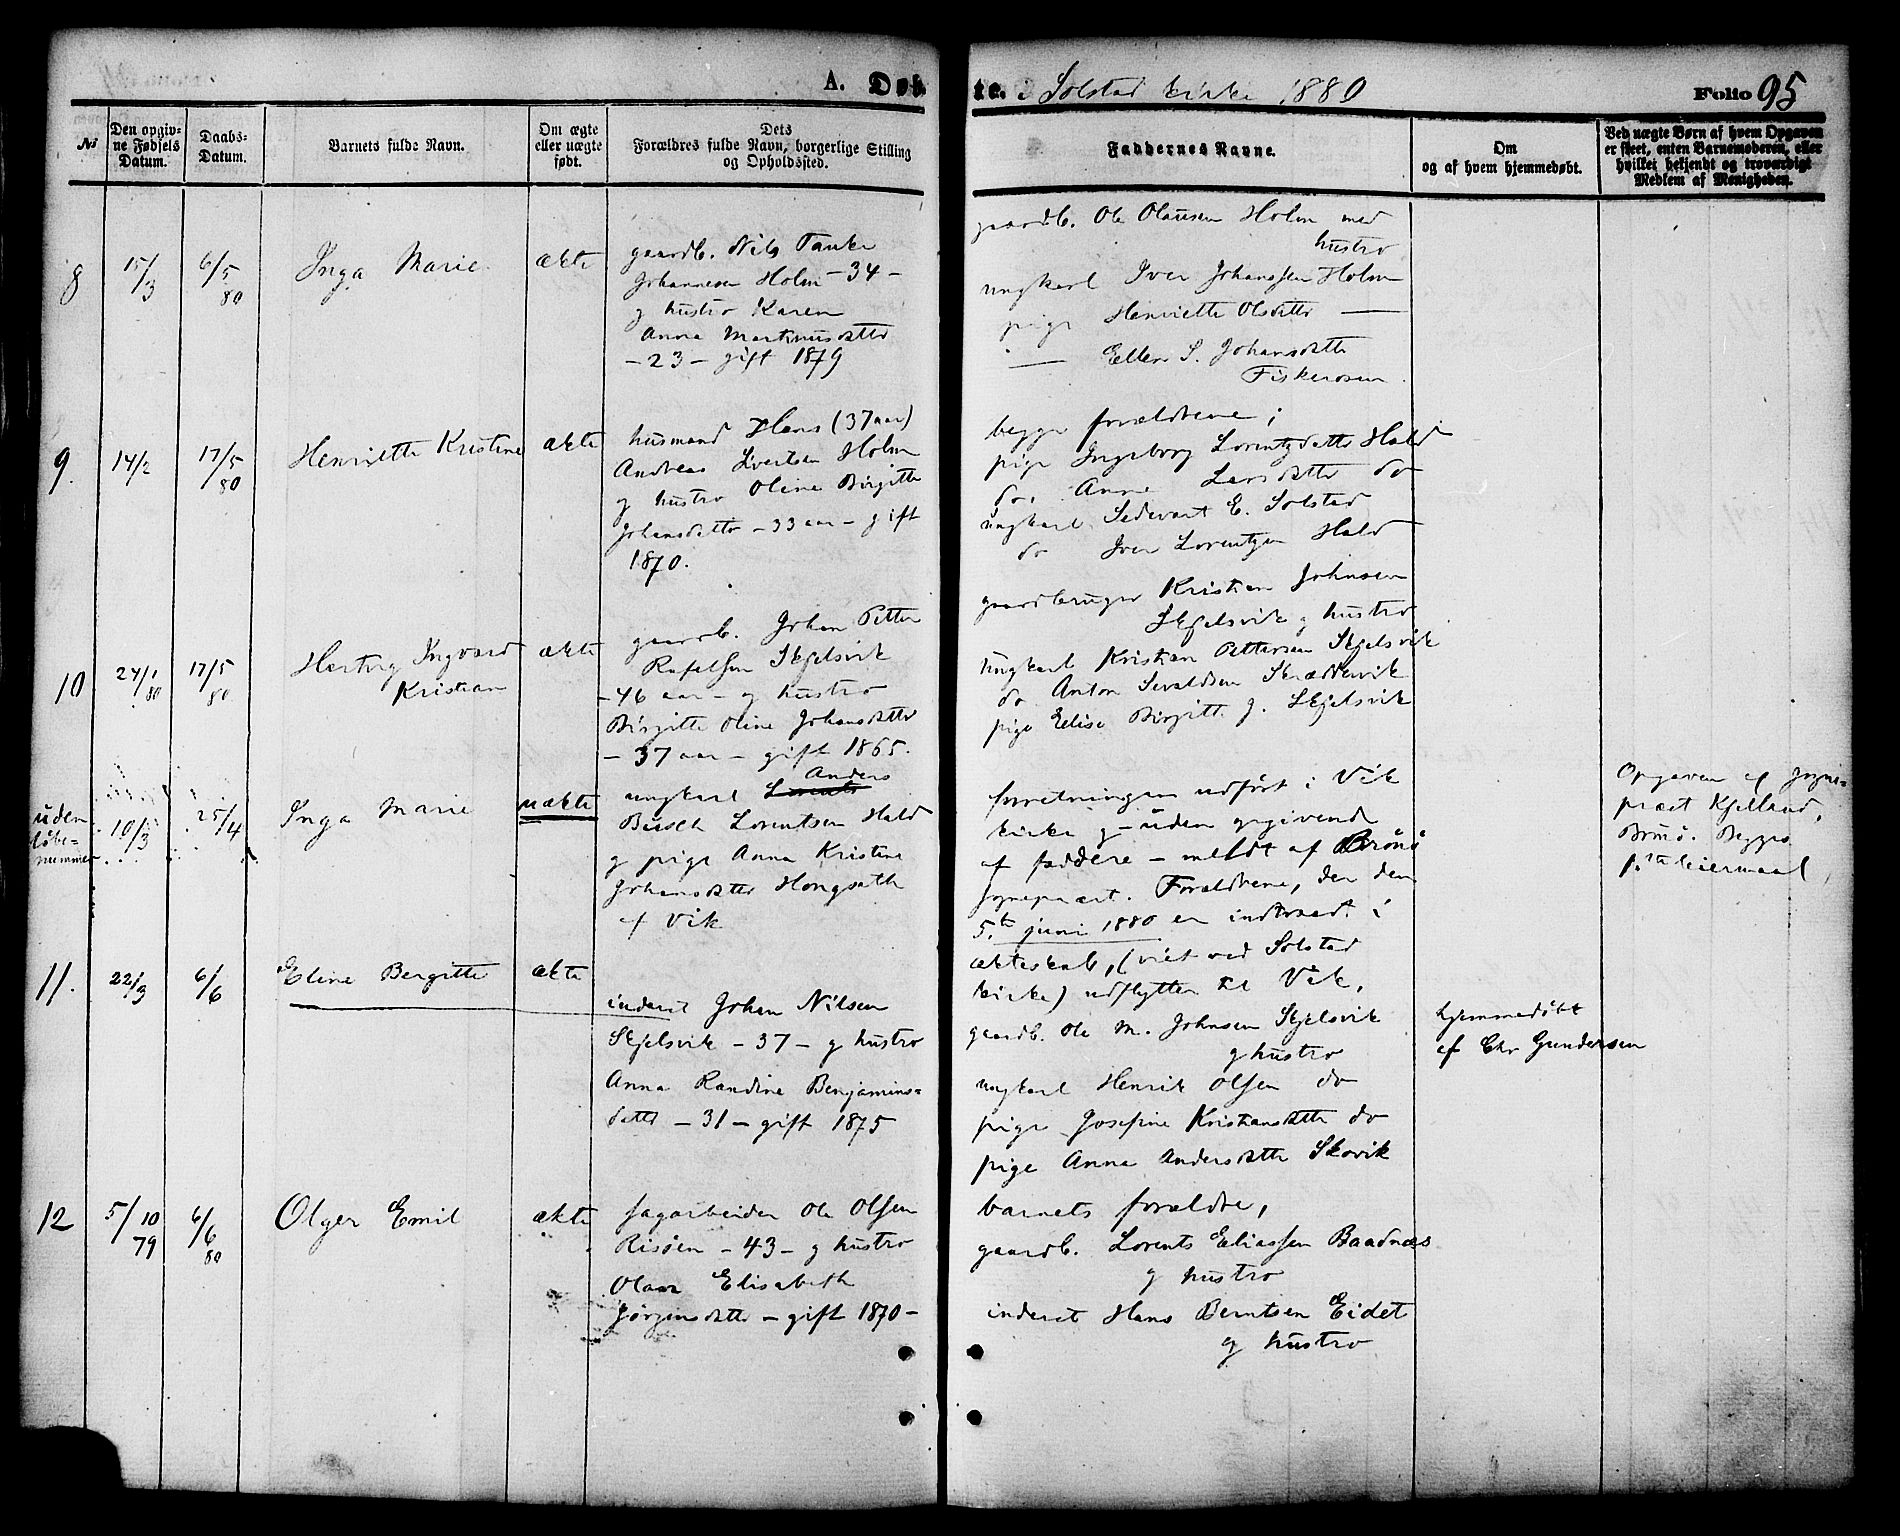 A. Døb-
te. i Solstad kirke 1880
Folio 95
No
Den opgiv-
ne Fødsels
Datum.
Daabs-
Datum.
Barnets fulde Navn.
Om ægte
eller uægte
født.
Dets
Forældres fulde Navn, borgerlige Stilling
og Opholdssted.
Faddernes Navne.
Om
og af hvem hjemmedøbt.
Ved uægte Børn af hvem Opgaven
er skeet, enten Barnemoderen, eller
hvilket bekjendt og troværdigt
Medlem af Menigheden.
8
15/3
6/5 80
Inga Marie
ækte
gaardb. Nils Tanke
Johannesen Holm - 34 -
g hustro Karen
Anna Martinusdatter
- 23 - gift 1879
gaardb. Ole Olausen Holm med
hustro
ungkarl Iver Johanssen Holm
pige Henriette Olsdatter —
— Ellen S. Johansdatter
Fiskerosen
9.
14/2
17/5 80
Henriette Kristine
ækte
husmand Hans (37 aar)
Andreas Sivertsen Holm
g hustro Oline Birgitte
Johansdatter - 33 aar - gift
1870.
begge forældrene;
pige Ingeborg Lorentzdatter Hald
do. Anne Larsdatter do
ungkarl Sedevart E. Solstad
do Iver Lorentzen Hald
10
24/1 80
17/5 80
Hartvig Ingvard
Kristian
ækte
gaardb. Johan Petter
Rafelsen Skjelsvik
- 46 aar - og hustro
Birgitte Oline Johansdatter
- 37 aar - gift 1865.
gaardbruger Kristian Johnsen
Skjelsvik g hustro
Ungkarl Kristian Pettersen Skjelsvik
do Anton Sivaldsen Skreddervik
pige Elise Birgitt. J. Skjelsvik
uden
løbe-
nummer
10/3
25/4
Inga Marie
uækte
Anders
ungkarl Lorents
Busch Lorentsen Hald
g pige Anna Kristine
Johansdatter Hongseth
af Vik
forretningen udført i Vik
kirke g uden opgivende
af faddere - meldt af Brønø
sognepræst. Forældrene, der den
5.te juni 1880 er indtraadt i
ækteskab, (viet ved Solstad
kirke) udflytter til Vik,
Opgaven af sogne-
præst Kjelland,
Brønø. Begges
1ste leiermaal
11.
22/3
6/6
Eline Bergitte
ækte
inderst Johan Nilsen
Skjelsvik - 37 - g hustro
Anna Randine Benjamins-
datter - 31 - gift 1875
gaardb. Ole M. Johnsen Skjelsvik
g hustro
ungkarl Henrik Olsen do
pige Josefine Kristiansdatter do
pige Anna Andersdatter Skovik
hjemmedøbt
af Chr Gundersen
12
5/10 79
6/6 80
Olger Emil
ækte
sagarbeider Ole Olsen
Risøen - 43 - g hustro
Olava Elisabeth
Jørgensdatter - gift 1870 -
barnets forældre,
gaardb. Lorents Eliassen Baadnæs
g hustro
inderst Hans Berntsen Eidet
g hustro